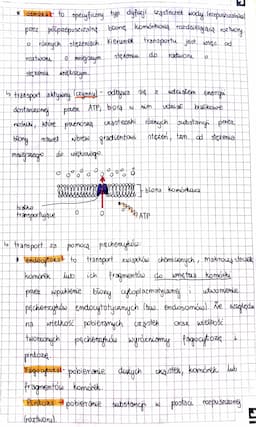 • osmoza to specyficzny typ dyfuzji cząsteczek wody (rozpuszczalnika)
przez półprzepuszczalną błonę komórkową rozdzielającą roztwory
o różnych stężeniach. Kierunek transportu jest więc od
roztworu o mniejszym stężeniu do roztworu o
stężeniu większym.
↳ transport aktywny (czynny) - odbywa się z udziałem energii
dostarczonej przez ATP, biorą w nim udział białkowe
nośniki, które przenoszą cząsteczki danych substancji przez
błony nawet wbrew gradientowi stężeń, tzn. od stężenia
mniejszego do większego.
błona komórkowa
białko
transportujące
ATP
↳ transport za pomocą pęcherzyków
• endocytoza to transport związków chemicznych, makrocząsteczek
komórek lub ich fragmentów do wnętrza komórki
przez wpuklenie błony cytoplazmatycznej i utworzenie
pęcherzyków endocytotycznych (tzw. endosomów). Ze względu
na wielkość pobieranych cząstek oraz wielkość
tworzonych pęcherzyków wyróżniamy fagocytozę i
pinozę.
Fagocytoza - pobieranie dużych cząstek, komórek lub
fragmentów komórek.
Pinoza - pobieranie substancji w postaci rozpuszczonej
(roztworu).